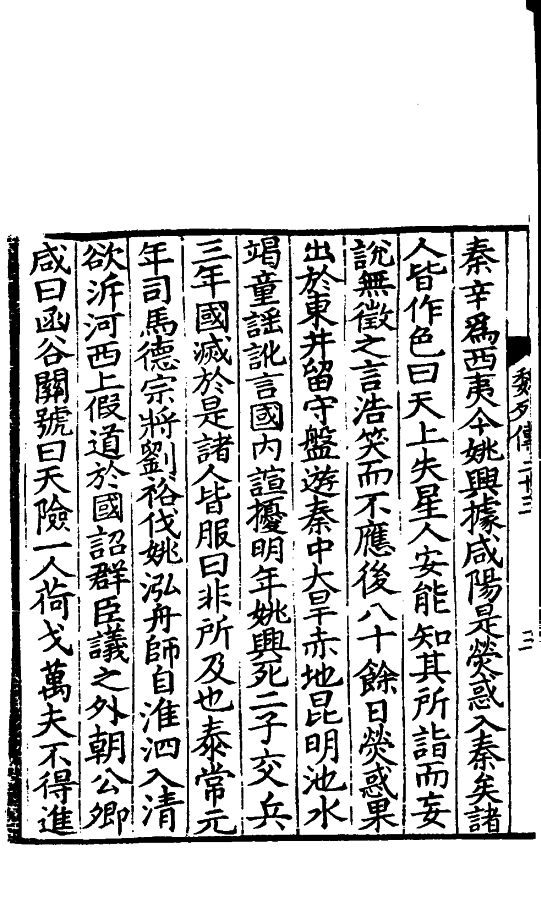 魏列傳二十三
三
秦辛爲西夷今姚興據咸陽是熒惑入秦矣諸
人皆作色曰天上失星人安能知其所詣而妄
說無徵之言浩笑而不應後八十餘日熒惑果
出於東井留守盤遊秦中大旱赤地昆明池水
竭童謡訛言國内諠擾明年姚興死二子交兵
三年國滅於是諸人皆服曰非所及也泰常元
年司馬德宗將劉裕伐姚泓舟師自淮泗入清
欲泝河西上假道於國詔群臣議之外朝公卿
咸曰函谷關號曰天險一人荷戈萬夫不得進